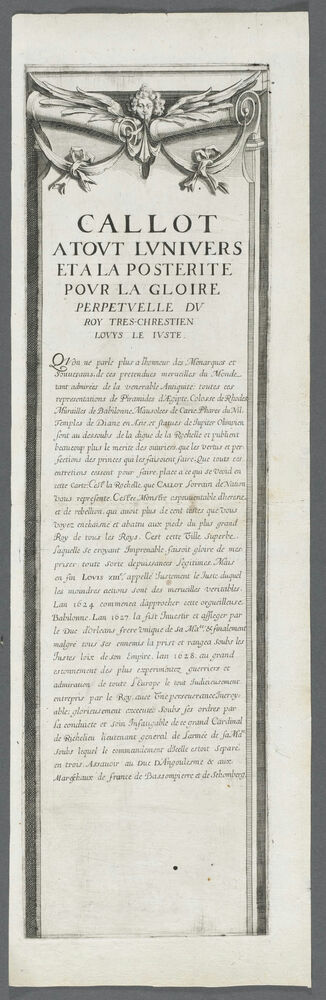 CALLOT
ATOVT LVNIVERS
ET A LA POSTERITE
POVR LA GLOIRE
PERPETVELLE DV
ROY TRES-CHRESTIEN
LOVYS LE IVSTE.
QVon ne parle plus a lhonneur des Monarques et
Souuerains, de ces pretendues merueilles du Monde
tant admirées de la venerable Antiquite: toutes ces
representations de Piramides d'Ægipte, Colosse de Rhodes
Murailles de Babilonne, Mausolees de Carie, Phares du Nil,
Temples de Diane en Asie, et statues de Iupiter Olimpien
sont au dessoubs de la digue de la Rochelle et publient
beaucoup plus le merite des ouuriers, que les vertus et per
fections des princes qui les faisoient faire. Que toutes ces
entretiens cessent pour faire place a ce qui se void en
cette Carte: C'est la Rochelle que CALLOT Lorrain de Nation
vous represente. C'est ce Monstre espouuentable, dheresie
et de rebellion, qui auoit plus de cent testes que vous
voyez enchaisné et abatu aux pieds du plus grand
Roy de tous les Roys. Cest cette Ville superbe,
laquelle se croyant Imprenable faisoit gloire de mes
priser toute sorte depuissances legitimes. Mais
en fin LOVIS XIII. appellé Iustement le Iuste, duquel
les moindres actions sont des merueilles veritables.
Lan 1624 commenca dapprocher cette orgueilleuse
Babilonne. Lan 1627. la fit Inuestir et assieger par
le Duc d'Orleans frere vnique de sa Ma.te & finalement
malgré tous ses ennemis la prist et rangea soubs les
Iustes loix de son Empire, lan 1628. au grand
estonnement des plus experimentez guerriers et
admiration de toute l'Europe le tout Iudicieusement
entrepris par le Roy, auec Vne perseuerance Incroy
able: glorieusement executee soubs ses ordres par
la conduicte et soin Infatigable de ce grand Cardinal
de Richelieu lieutenant general de l'armée de sa Ma.te
soubs lequel le commandement dicelle estoit separé
en trois. Assauoir au Duc D'Angoulesme & aux
Mareschaux de france de Bassompierre et de Schomberg.